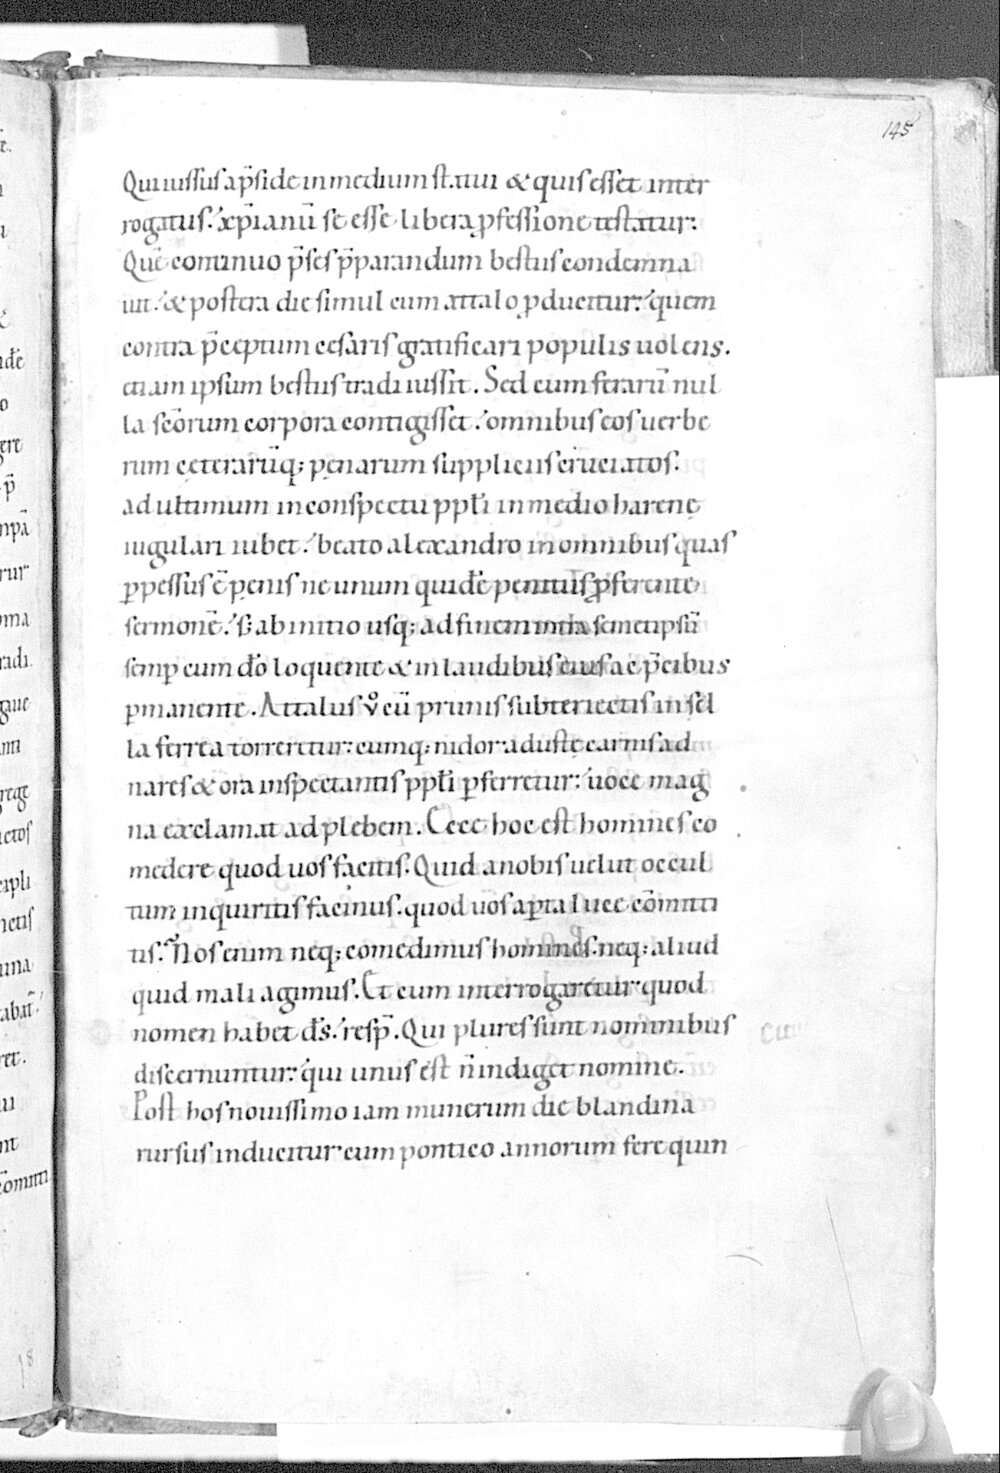 145
Qui iussus ap̄side in medium statui & quis esset inter
rogatus. xp̄ianū se esse libera ꝓfessione testatur.
Quē continuo p̄ses p̄parandum bestiis condemna
uit. & postera die simul cum attalo ꝓducitur. quem
contra p̄ceptum cesaris gratificari populis uolens.
etiam ipsum bestiis tradi iussit. Sed cum ferarū nul
la scōrum corpora contigisset. omnibus eos uerbe
rum cęterarūq; pęnarum suppliciis cruciatos.
ad ultimum in conspectu ppłi in medio harenę
iugulari iubet. beato alexandro in omnibus quas
ꝑpessus ē pęnis ne unum quidē penitus ꝓferente
sermonē. s; ab initio usq; ad finem intra semetipsū
semꝑ cum dō loquente & in laudibus eius ac p̄cibus
ꝑmanente. Attalus v̊ cū prunis subteriectis in sel
la ferrea torreretur. cumq; nidor adustę carnis ad
nares & ora inspectantis ppłi ꝑferretur. uoce mag
na exclamat ad plebem. Ecce hoc est homines co
medere quod uos facitis. Quid a nobis uelut occul
tum inquiritis facinus. quod uos aꝑta luce cōmitti
tis. Nos enim neq; comedimus homines. neq; aliud
quid mali agimus. Et cum interrogaretur quod
nomen habet d̄s. resp̄. Qui plures sunt nominibus
discernuntur. qui unus est n̄ indiget nomine.
Post hos nouissimo iam munerum die blandina
rursus inducitur cum pontico annorum fere quin